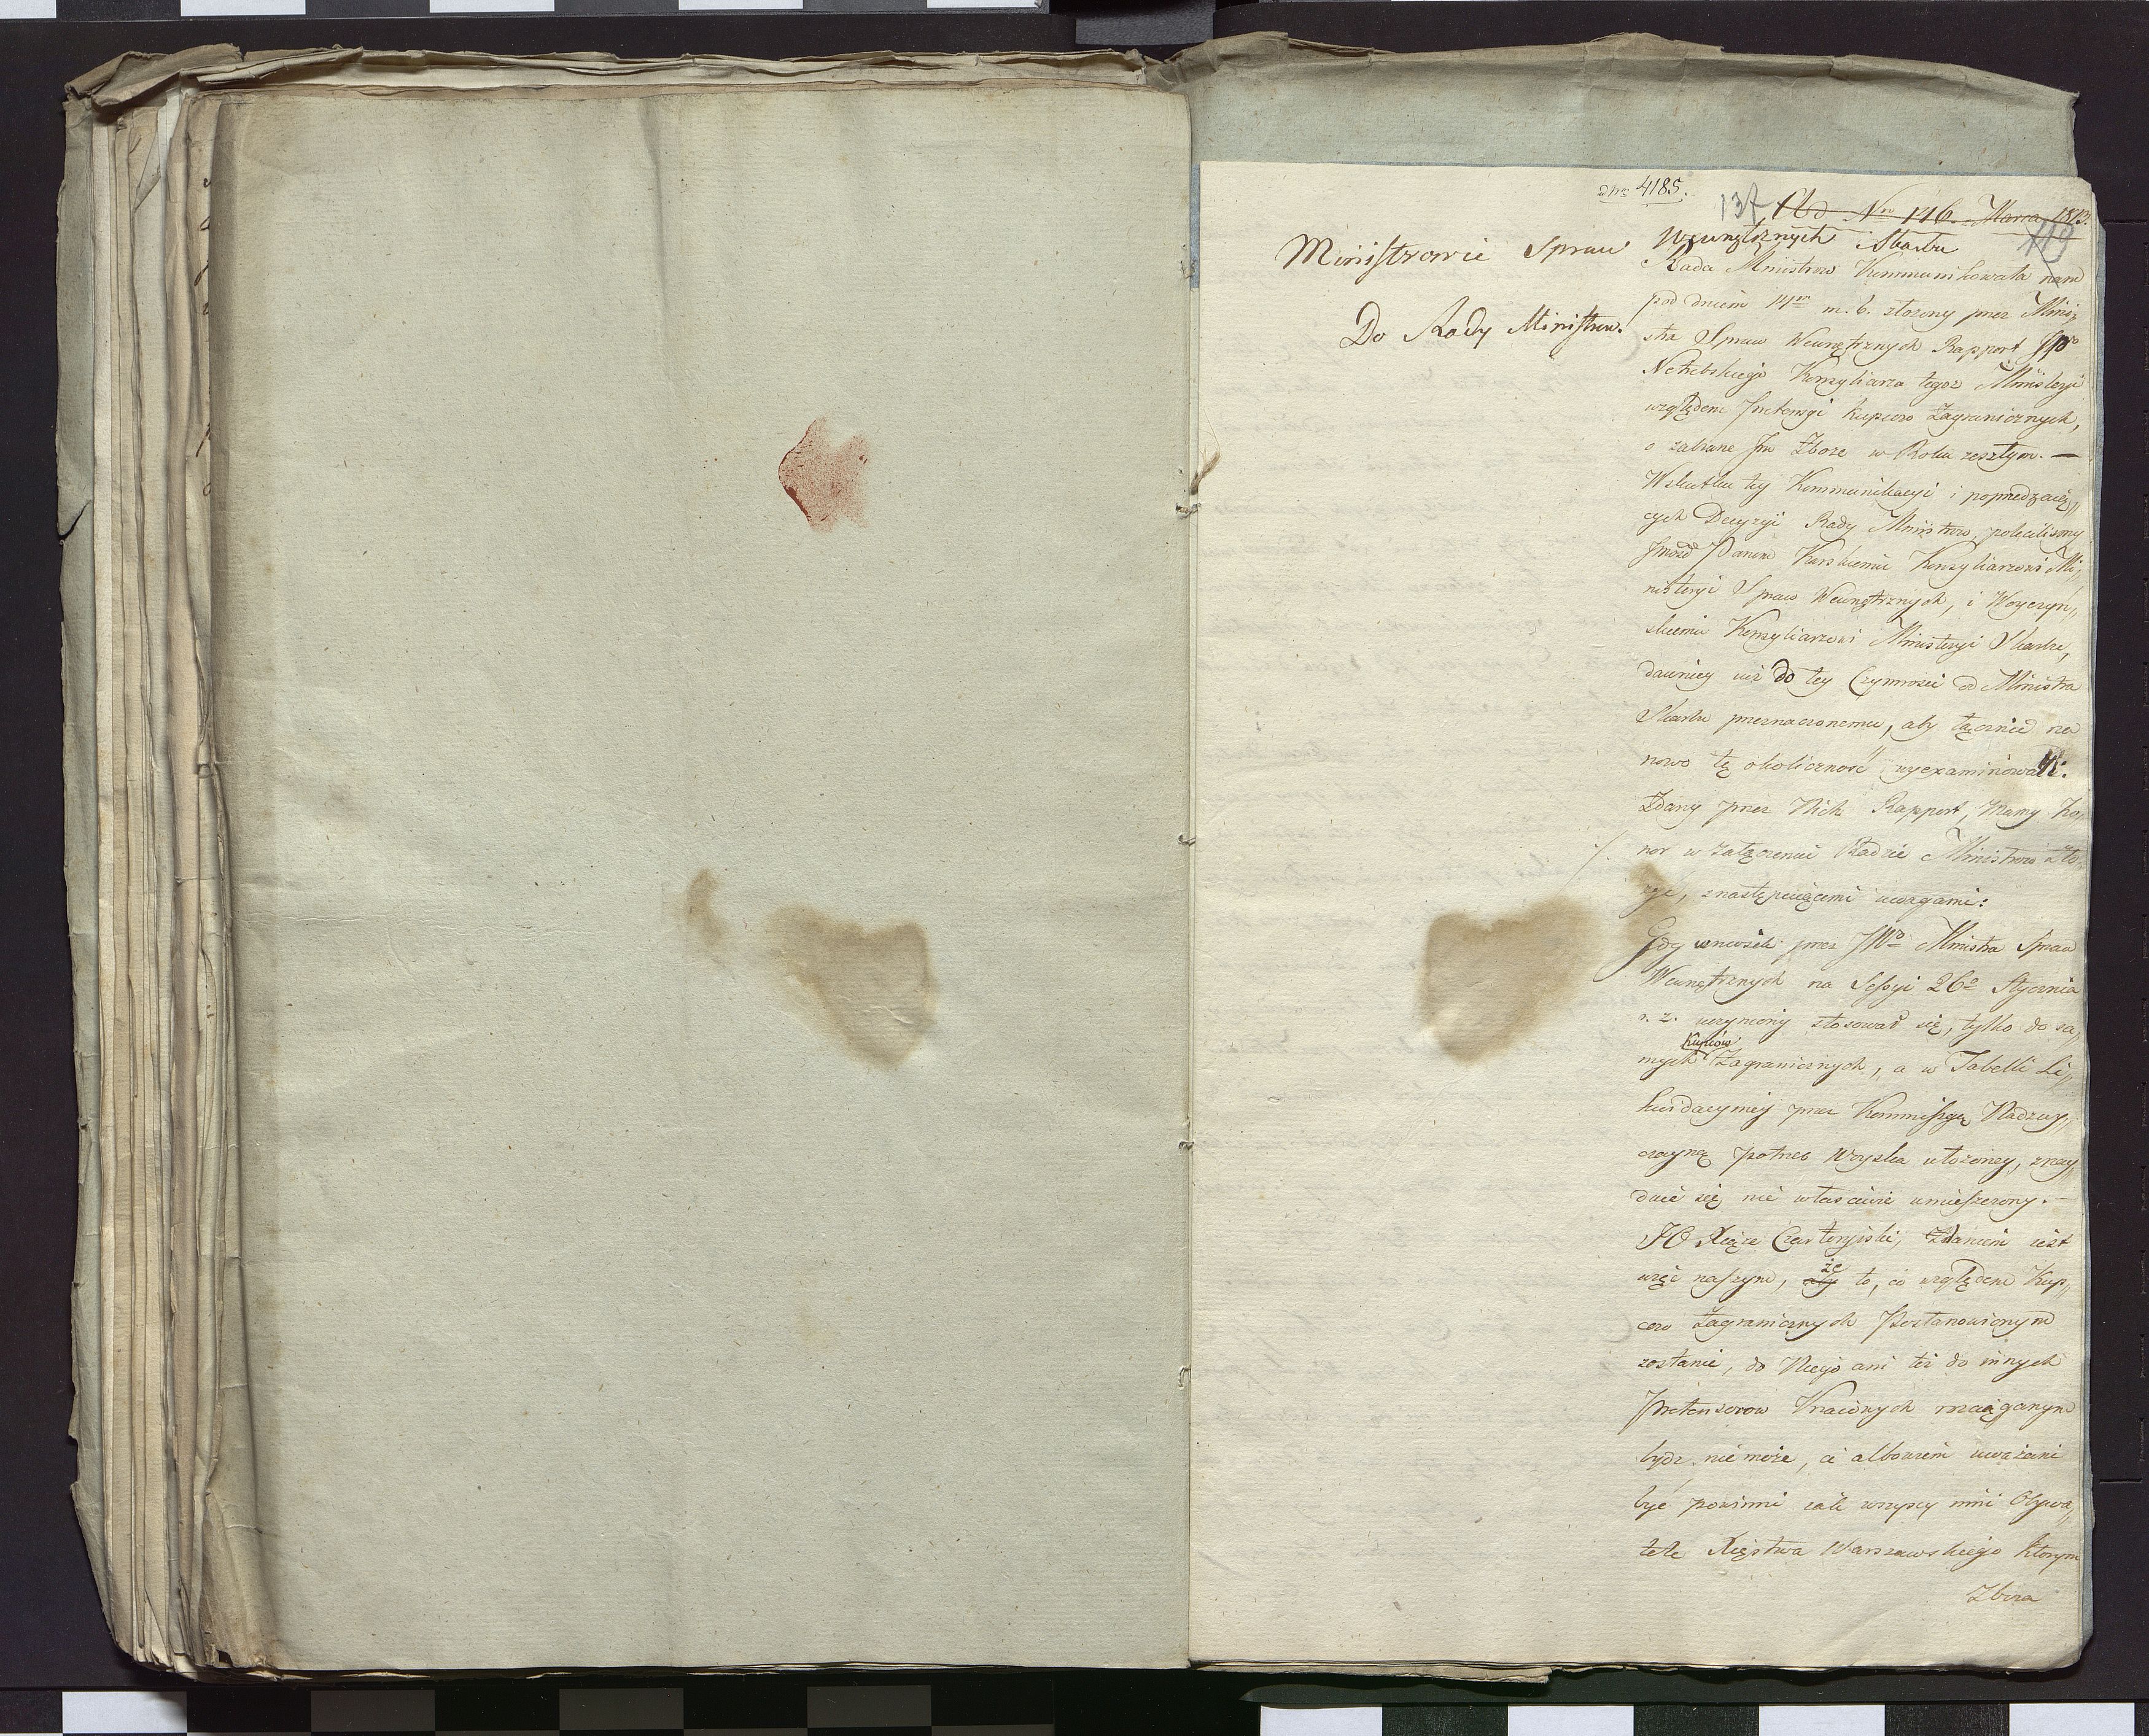 4185.
137
Ad Nrm 1416. Marca 1813.
119
Ministrowie Spraw Wewnętrznych i Skarbu
Do Rady Ministrow.
Rada Ministrow Kommunikowała nam
pod dniem 14m m. b. złożony przez Mini„
stra Spraw Wewnętrznych Rapport JPo
Netrebskiego Konsyliarza tegoż Ministeryi
względem pretensyi kupcow Zagranicznych,
o zabrane Im Zboże w Roku zeszłym. —
Wskutku tey Kommunikacyi i poprzedzaią„
cych Decyzyi Rady Ministrow, polecilismy
Panom Karskiemu Konsyliarzowi Mi„
nisteryi Spraw Wewnętrznych, i Woyczyń„
skiemu Konsyliarzowi Ministeryi Skarbu,
dawniey iuż do tey Czynności od Ministra
Skarbu przeznaczonemu, aby łącznie na
nowo tę okoliczność wyexaminowali.
Zdany przez Nich Rapport, Mamy ho„
nor w załączeniu Radzie Ministrow zło„
żyć, znastępuiącemi uwagami:
Gdy wniosek przez JWo Ministra Spraw
Wewnętrznych na Sessyi 26o Stycznia
r. z. uczyniony stosował się, tylko do sa„
mych Kupców Zagranicznych, a w Tabelli Li„
kwidacyiney przez Kommissyą Nadzwy„
czayną potrzeb Woyska ułożoney, znay„
duie się nie właściwie umieszczony. —
JO Xiąże Czartoryiski, Zdaniem iest
więc naszym, aby że to, co względem Kup„
cow Zagranicznych Postanowionym
zostanie, do Niego ani też do innych
Pretensorow Kraiowych rozciąganym
bydz nie może, ci albowiem uważani
być powinni iak wszyscy inni Obywa„
tele Xięstwa Warszawskiego którym
Zboża